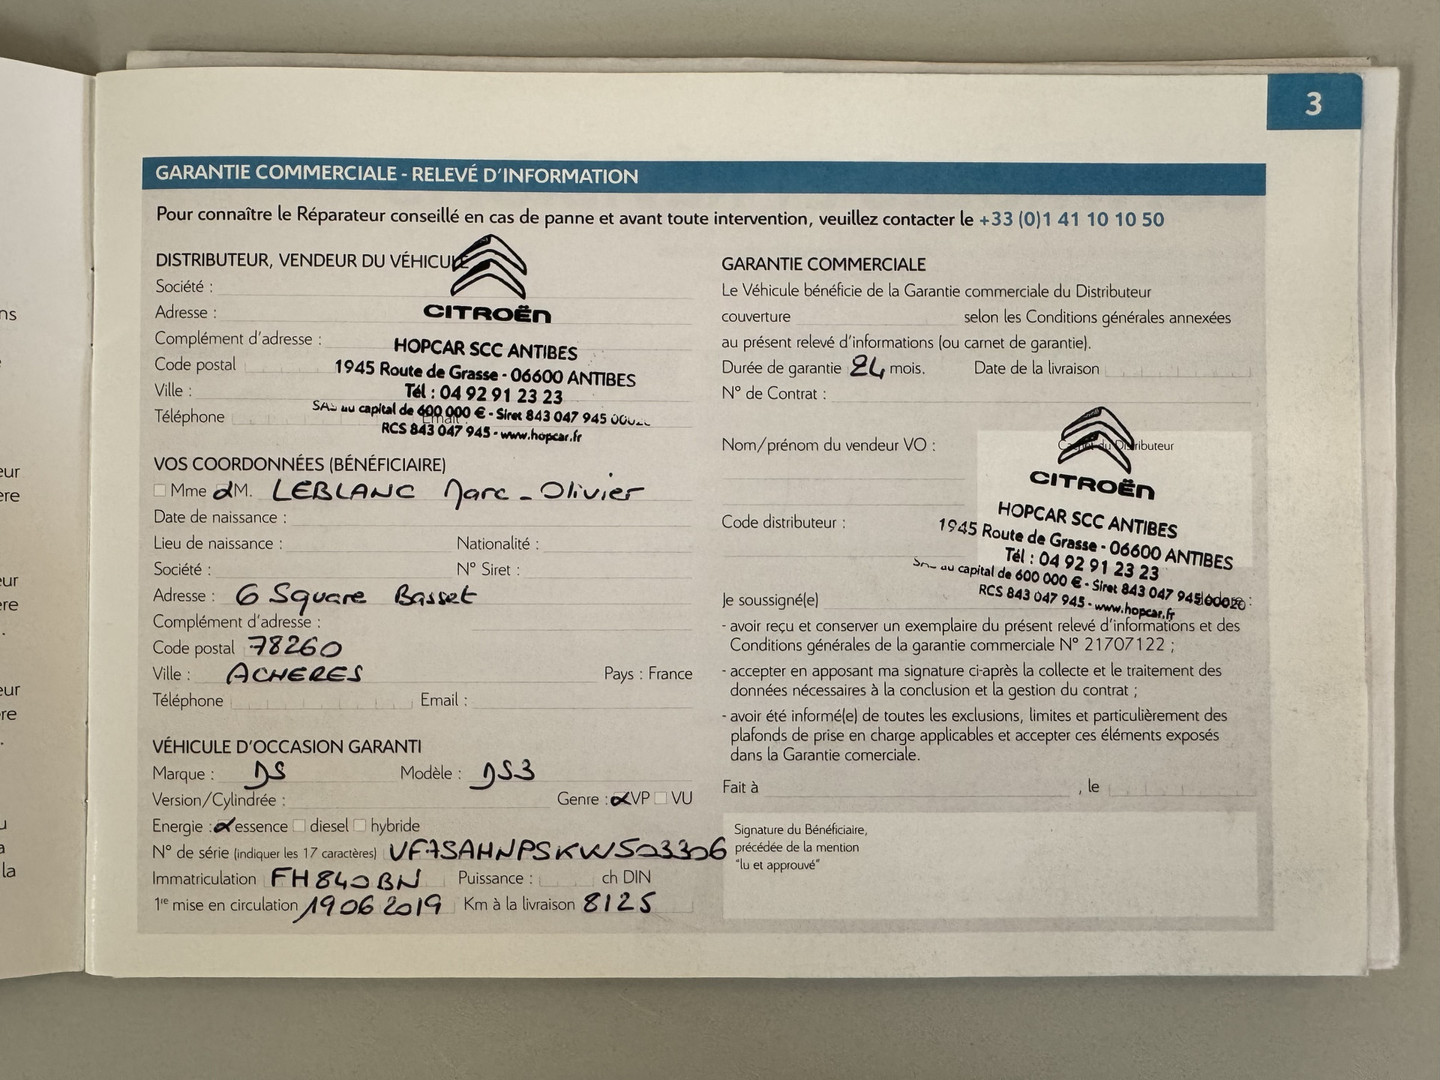 3
GARANTIE COMMERCIALE - RELEVÉ D'INFORMATION
Pour connaître le Réparateur conseillé en cas de panne et avant toute intervention, veuillez contacter le +33 (0)1 41 10 10 50
DISTRIBUTEUR, VENDEUR DU VÉHICULE
Société :
Adresse :
Complément d'adresse :
Code postal
Ville :
Téléphone
Email :
CITROËN
HOPCAR SCC ANTIBES
1945 Route de Grasse - 06600 ANTIBES
Tél : 04 92 91 23 23
SAS au capital de 600 000 € - Siret 843 047 945
RCS 843 047 945 - www.hopcar.fr
VOS COORDONNÉES (BÉNÉFICIAIRE)
Mme M. LEBLANC Marc-Olivier
Date de naissance :
Lieu de naissance : Nationalité :
Société : N° Siret :
Adresse : 6 Square Basset
Complément d'adresse :
Code postal 78260
Ville : ACHERES Pays : France
Téléphone Email :
VÉHICULE D'OCCASION GARANTI
Marque : DS Modèle : DS3
Version/Cylindrée : Genre : VP VU
Energie : essence diesel hybride
N° de série (indiquer les 17 caractères) VF7SAHNPSKW503306
Immatriculation FH840BN Puissance : ch DIN
1re mise en circulation 19 06 2019 Km à la livraison 8125
GARANTIE COMMERCIALE
Le Véhicule bénéficie de la Garantie commerciale du Distributeur
couverture selon les Conditions générales annexées
au présent relevé d'informations (ou carnet de garantie).
Durée de garantie 24 mois. Date de la livraison
N° de Contrat :
Nom/prénom du vendeur VO :
Cachet du Distributeur
Code distributeur :
CITROËN
HOPCAR SCC ANTIBES
1945 Route de Grasse - 06600 ANTIBES
Tél : 04 92 91 23 23
au capital de 600 000 € - Siret 843 047 945 00020
RCS 843 047 945 - www.hopcar.fr
Je soussigné(e)
- avoir reçu et conserver un exemplaire du présent relevé d'informations et des
Conditions générales de la garantie commerciale N° 21707122 ;
- accepter en apposant ma signature ci-après la collecte et le traitement des
données nécessaires à la conclusion et la gestion du contrat ;
- avoir été informé(e) de toutes les exclusions, limites et particulièrement des
plafonds de prise en charge applicables et accepter ces éléments exposés
dans la Garantie comerciale.
Fait à , le
Signature du Bénéficiaire,
précédée de la mention
"lu et approuvé"
ns
eur
ère
eur
ère
.
eur
ère
.
u
a
la